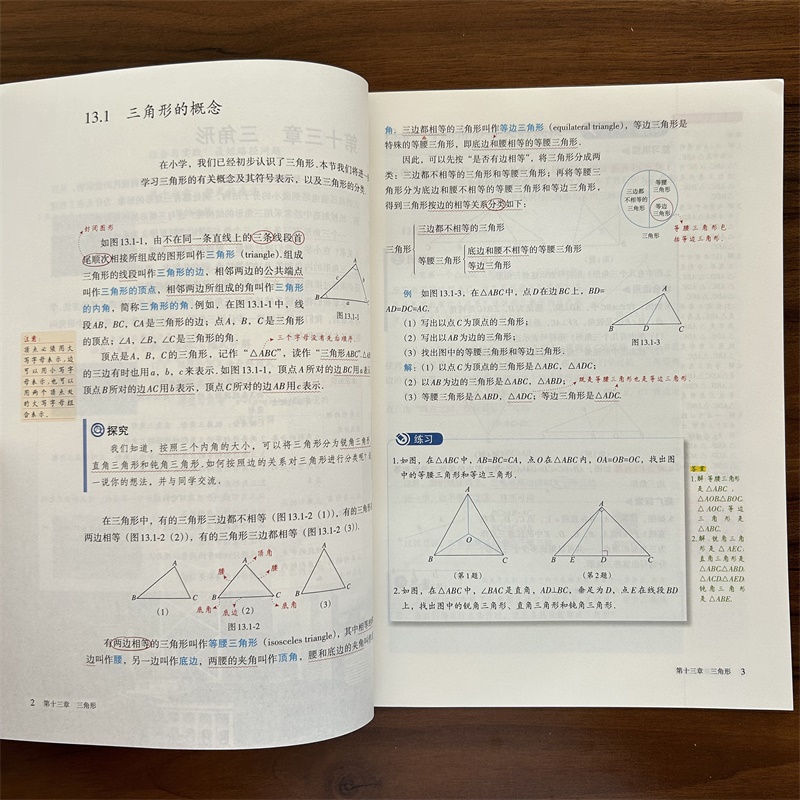 13.1 三角形的概念
在小学，我们已经初步认识了三角形.本节我们将进一
学习三角形的有关概念及其符号表示，以及三角形的分类.
封闭图形
如图13.1-1，由不在同一条直线上的三条线段首
尾顺次相接所组成的图形叫作三角形（triangle）.组成
三角形的线段叫作三角形的边，相邻两边的公共端点
叫作三角形的顶点，相邻两边所组成的角叫作三角形
的内角，简称三角形的角.例如，在图13.1-1中，线
段AB，BC，CA是三角形的边；点A，B，C是三角形
的顶点；∠A，∠B，∠C是三角形的角.
A
B
a
图13.1-1
三个字母没有先后顺序.
注意：
顶点必须用大
写字母表示，边
可以用小写字
母表示，也可以
用两个顶点处
的大写字母组
合表示.
顶点是A，B，C的三角形，记作“△ABC”，读作“三角形ABC”.△
的三边有时也用a，b，c来表示.如图13.1-1，顶点A所对的边BC用a表
顶点B所对的边AC用b表示，顶点C所对的边AB用c表示.
探究
我们知道，按照三个内角的大小，可以将三角形分为锐角三角形
直角三角形和钝角三角形.如何按照边的关系对三角形进行分类呢？
一说你的想法，并与同学交流.
在三角形中，有的三角形三边都不相等（图13.1-2（1）），有的三角形
两边相等（图13.1-2（2）），有的三角形三边都相等（图13.1-2（3））.
A
B
C
（1）
A
顶角
腰
腰
B
C
底角
底边
底角
（2）
A
B
C
（3）
图13.1-2
有两边相等的三角形叫作等腰三角形（isosceles triangle），其中相等的
边叫作腰，另一边叫作底边，两腰的夹角叫作顶角，腰和底边的夹角叫作
2 第十三章 三角形
角.三边都相等的三角形叫作等边三角形（equilateral triangle），等边三角形是
特殊的等腰三角形，即底边和腰相等的等腰三角形.
因此，可以先按“是否有边相等”，将三角形分成两
类：三边都不相等的三角形和等腰三角形；再将等腰三
角形分为底边和腰不相等的等腰三角形和等边三角形，
得到三角形按边的相等关系分类如下：
三边都
不相等的
三角形
等腰
三角形
等边
三角形
三角形
等腰三角形包
括等边三角形.
三角形
三边都不相等的三角形
等腰三角形
底边和腰不相等的等腰三角形
等边三角形
例 如图13.1-3，在△ABC中，点D在边BC上，BD=
AD=DC=AC.
（1）写出以点C为顶点的三角形；
（2）写出以AB为边的三角形；
（3）找出图中的等腰三角形和等边三角形.
A
B
D
C
图13.1-3
解：（1）以点C为顶点的三角形是△ABC，△ADC；
（2）以AB为边的三角形是△ABC，△ABD；
既是等腰三角形也是等边三角形.
（3）等腰三角形是△ABD，△ADC；等边三角形是△ADC.
练习
1.如图，在△ABC中，AB=BC=CA，点O在△ABC内，OA=OB=OC，找出图
中的等腰三角形和等边三角形.
A
O
B
C
（第1题）
A
B
E
D
C
（第2题）
2.如图，在△ABC中，∠BAC是直角，AD⊥BC，垂足为D，点E在线段BD
上，找出图中的锐角三角形、直角三角形和钝角三角形.
答案
1.解：等腰三角形
是△ABC，
△AOB,△BOC,
△AOC；等边
三角形是
△ABC.
2.解：锐角三角
形是△AEC,
直角三角形是
△ABC,△ABD,
△ACD,△AED.
钝角三角形
是△ABE.
第十三章 三角形 3